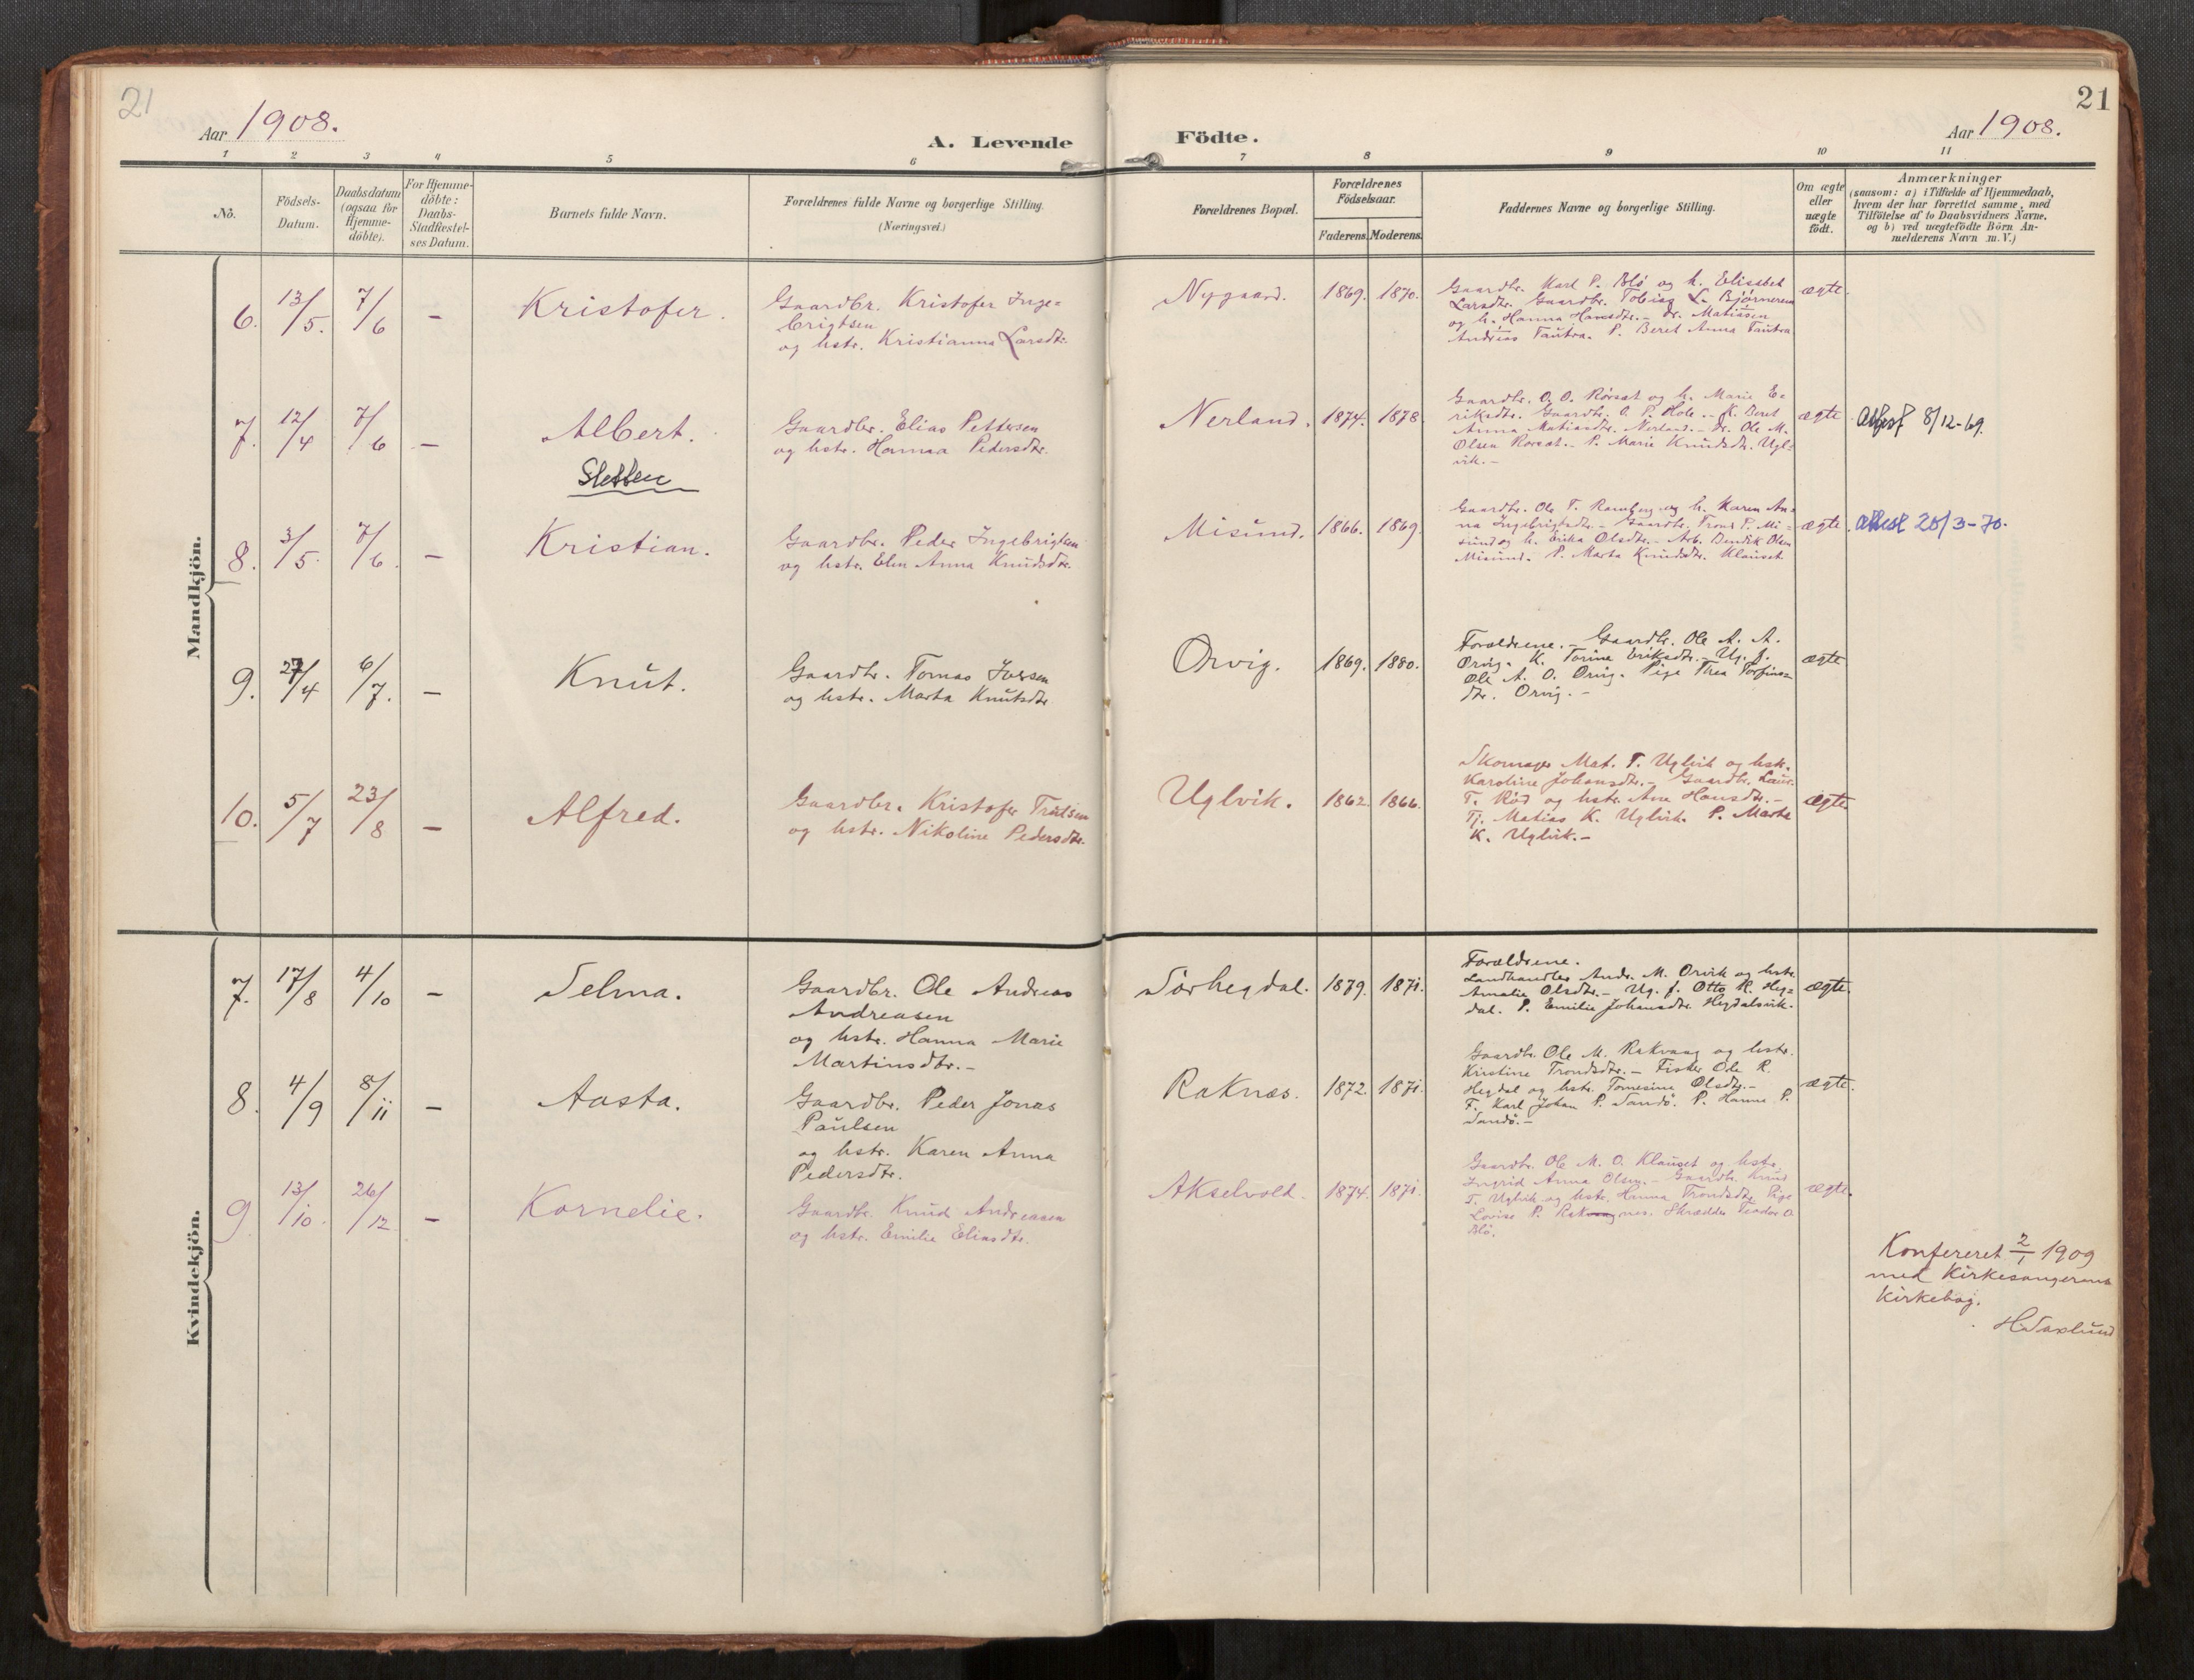 21
Aar 1908.
A. Levende
Födte.
Aar 1908.
21
1 2 3 4 5 6 7 8 9 10 11
No.
Födsels-
Datum.
Daabsdatum
(ogsaa for
Hjemme-
döbte).
For Hjemme-
döbte:
Daabs-
Stadfæstel-
ses Datum.
Barnets fulde Navn.
Forældrenes fulde Navne og borgerlige Stilling.
(Næringsvei.)
Forældrenes Bopæl.
Forældrenes
Födselsaar.
Faderens. Moderens.
Faddernes Navne og borgerlige Stilling.
Om ægte
eller
uægte
födt.
Anmærkninger
(saasom: a) i Tilfælde af Hjemmedaab,
hvem der har forrettet samme, med
Tilföielse af to Daabsvidners Navne,
og b) ved uægtefödte Börn An-
melderens Navn m. V.)
Mandkjön.
6. 13/5. 7/6 – Kristofer.
Gaardbr. Kristofer Inge=
brigtsen
og hstr. Kristianna Larsdtr.
Nygaard. 1869. 1870.
Gaardbr. Karl P. Blö og h. Elisabet
Larsdtr. Gaardbr. Tobias L. Bjørnerem
og h. Hanna Hansdtr. – Dr. Matiasen
Andreas Tautra. P. Beret Anna Tautra
ægte.
7. 12/4 7/6 – Albert.
Sletten
Gaardbr. Elias Pettersen
og hstr. Hanna Pedersdtr.
Nerland. 1874. 1878.
Gaardbr. O. O. Rørset og h. Marie E=
riksdtr. Gaardbr. O. P. Hole. – K. Beret
Anna Matiasdtr. Nerland. – Dr. Ole M.
Olsen Rørset. – P. Marie Knudsdtr. Ugl=
vik. –
ægte. Attest 8/12-69.
8. 3/5. 7/6. – Kristian.
Gaardbr. Peder Ingebrigtsen
og hstr. Elen Anna Knudsdtr.
Misund. 1866. 1869.
Gaardbr. Ole T. Ramberg og h. Karen An=
na Ingebrigtsdtr. – Gaardbr. Trond P. Mi=
sund og h. Erika Olsdtr. – Arb. Bendik Olsen
Misund. P. Marta Knudsdtr. Klauset
ægte. Attest 20/3-70.
9. 27/4 6/7. – Knut.
Gaardbr. Tomas Iversen
og hstr. Marta Knutsdtr
Orvig. 1869. 1880.
Forældrene. – Gaardbr. Ole A. A.
Orvig. K. Torine Eriksdtr. – Ug. f.
Ole A. O. Orvig. Pige Thea Torfins=
dtr. Orvig. –
ægte
10. 5/7 23/8 – Alfred.
Gaardbr. Kristofer Trulsen
og hstr. Nikoline Pedersdtr.
Uglvik. 1862. 1866.
Skomager Mat. T. Uglvik og hsk.
Karoline Johansdtr. – Gaardbr. Laur.
T. Rød og hstr. Ane Hansdtr. –
Tj. Matias K. Uglvik. P. Marta
K. Uglvik. –
ægte
Kvindekjön.
7. 17/8 4/10 – Selma.
Gaardbr. Ole Andreas
Andreasen
og hstr. Hanna Marie
Martinsdtr. –
Sørhegdal. 1879. 1871.
Forældrene.
Landhandler Andr. M. Orvik og hstr.
Amalie Olsdtr. – Ug. f. Otto K. Heg=
dal. P. Emilie Johansdtr. Hegdalsvik.
ægte.
8. 4/9 8/11 – Aasta.
Gaardbr. Peder Jonas
Paulsen
og hstr. Karen Anna
Pedersdtr.
Raknæs. 1872. 1871.
Gaardbr. Ole M. Rakvaag og hstr.
Kirstine Trondsdtr. – Fisker Ole R.
Hegdal og hstr. Tomesine Olsdtr. –
F. Karl Johan P. Sandö. P. Hanna P.
Sandö. –
ægte.
9. 13/10. 26/12. – Kornelie.
Gaardbr. Knud Andreasen
og hstr. Emilie Eliasdtr.
Akselvold. 1874. 1871.
Gaardbr. Ole M. O. Klauset og hstr.
Ingrid Anna Olsen. – Gaardbr. Knud
T. Uglvik og hstr. Hanna Trondsdtr. Pige
Lovise P. Raknes. Skrædder Teodor O.
Blö.
ægte.
Konfereret 2/1 1909
med Kirkesangerens
Kirkebog.
H. Saxlund